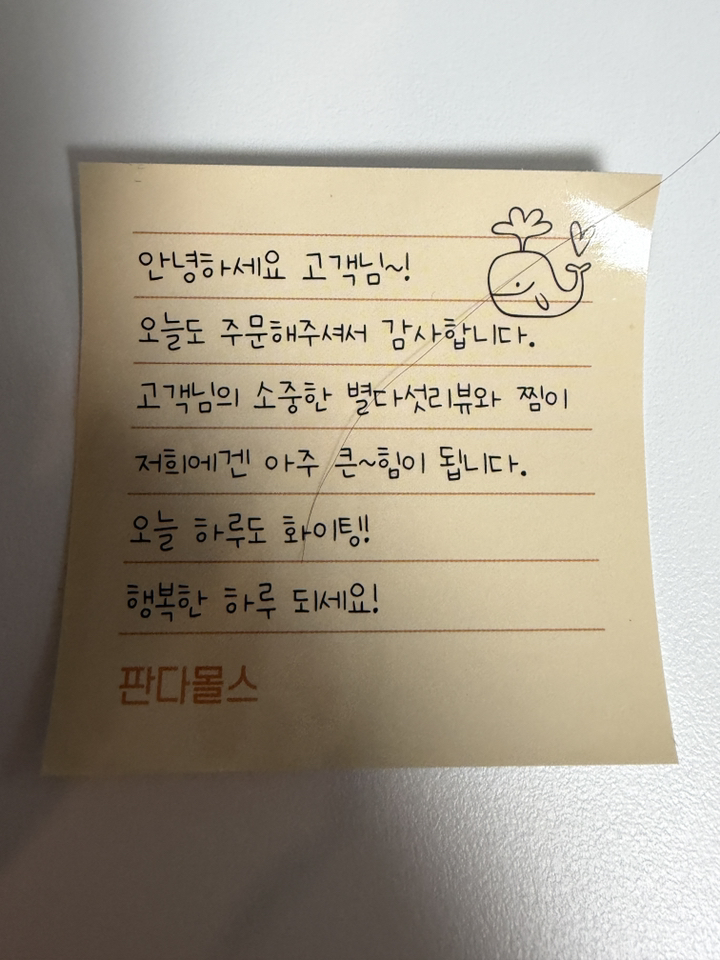 안녕하세요 고객님~!
오늘도 주문해주셔서 감사합니다.
고객님의 소중한 별다섯리뷰와 찜이
저희에겐 아주 큰~힘이 됩니다.
오늘 하루도 화이팅!
행복한 하루 되세요!
판다몰스